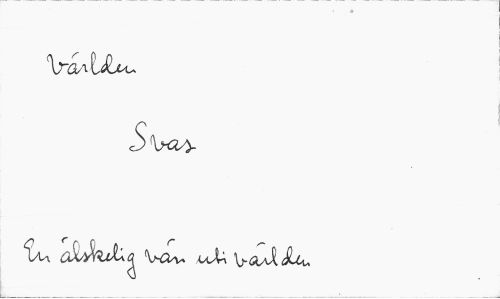 Världen
Svar
En älskelig vän uti världen